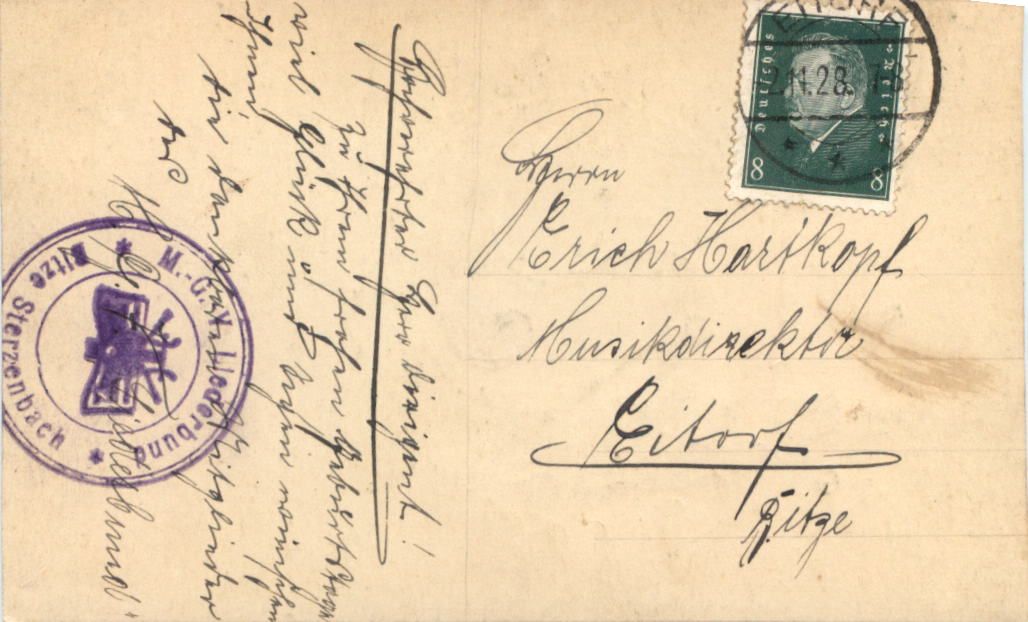 Hochverehrter Herr Dirigent!
Zu Ihrem frohen Geburtstage
viel Glück und Segen wünschen
Ihnen
die dankbaren Mitglieder
des
M. G. V. „Liederbund“
M.-G.-V. Liederbund
* Bitze Sterzenbach *
Deutsches Reich
8 8
2.11.28.
Herrn
Erich Hartkopf
Musikdirektor
Eitorf
Bitze